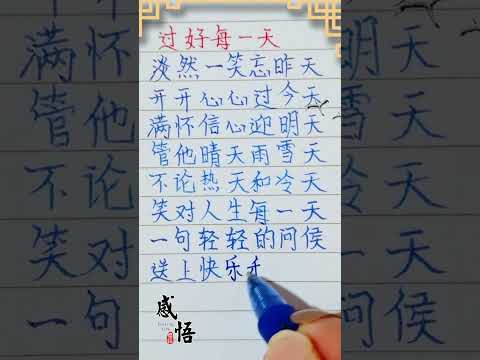 过好每一天
淡然一笑忘昨天
开开心心过今天
满怀信心迎明天
管他晴天雨雪天
不论热天和冷天
笑对人生每一天
一句轻轻的问候
送上快乐
感悟